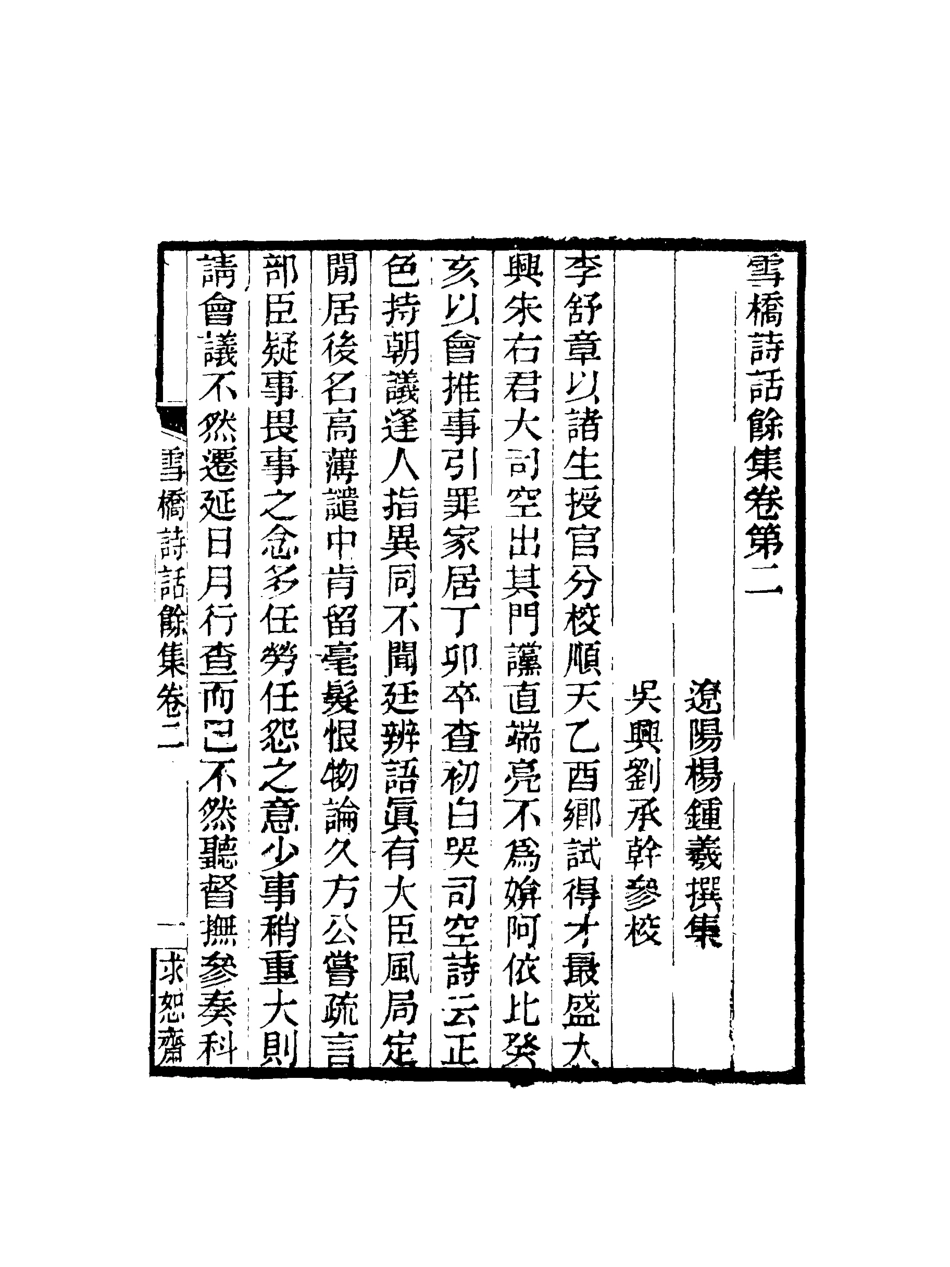 雪橋詩話餘集卷第二
遼陽楊鍾羲撰集
吳興劉承幹參校
李舒章以諸生授官分校順天乙酉鄉試得才最盛大
興朱右君大司空出其門讜直端亮不爲媕阿依比癸
亥以會推事引罪家居丁卯卒查初白哭司空詩云正
色持朝議逢人指異同不聞廷辨語眞有大臣風局定
閒居後名高薄譴中肯留毫髮恨物論久方公嘗疏言
部臣疑事畏事之念多任勞任怨之意少事稍重大則
請會議不然遷延日月行查而已不然聽督撫參奏科
雪橋詩話餘集卷二
一
求恕齋